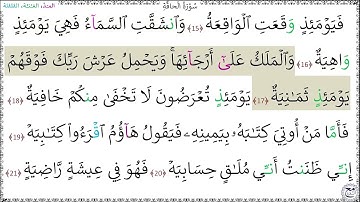 سُورَةُ الحَاقَّةِ
المد، الغنة، القلقلة
فَيَوْمَئِذٍ وَقَعَتِ ٱلْوَاقِعَةُ ﴿15﴾ وَٱنشَقَّتِ ٱلسَّمَآءُ فَهِيَ يَوْمَئِذٍ
وَاهِيَةٌ ﴿16﴾ وَٱلْمَلَكُ عَلَىٰٓ أَرْجَآئِهَا ۚ وَيَحْمِلُ عَرْشَ رَبِّكَ فَوْقَهُمْ
يَوْمَئِذٍ ثَمَٰنِيَةٌ ﴿17﴾ يَوْمَئِذٍ تُعْرَضُونَ لَا تَخْفَىٰ مِنكُمْ خَافِيَةٌ ﴿18﴾
فَأَمَّا مَنْ أُوتِيَ كِتَٰبَهُۥ بِيَمِينِهِۦ فَيَقُولُ هَآؤُمُ ٱقْرَءُوا۟ كِتَٰبِيَهْ ﴿19﴾
إِنِّي ظَنَنتُ أَنِّي مُلَٰقٍ حِسَابِيَهْ ﴿20﴾ فَهُوَ فِي عِيشَةٍ رَّاضِيَةٍ ﴿21﴾